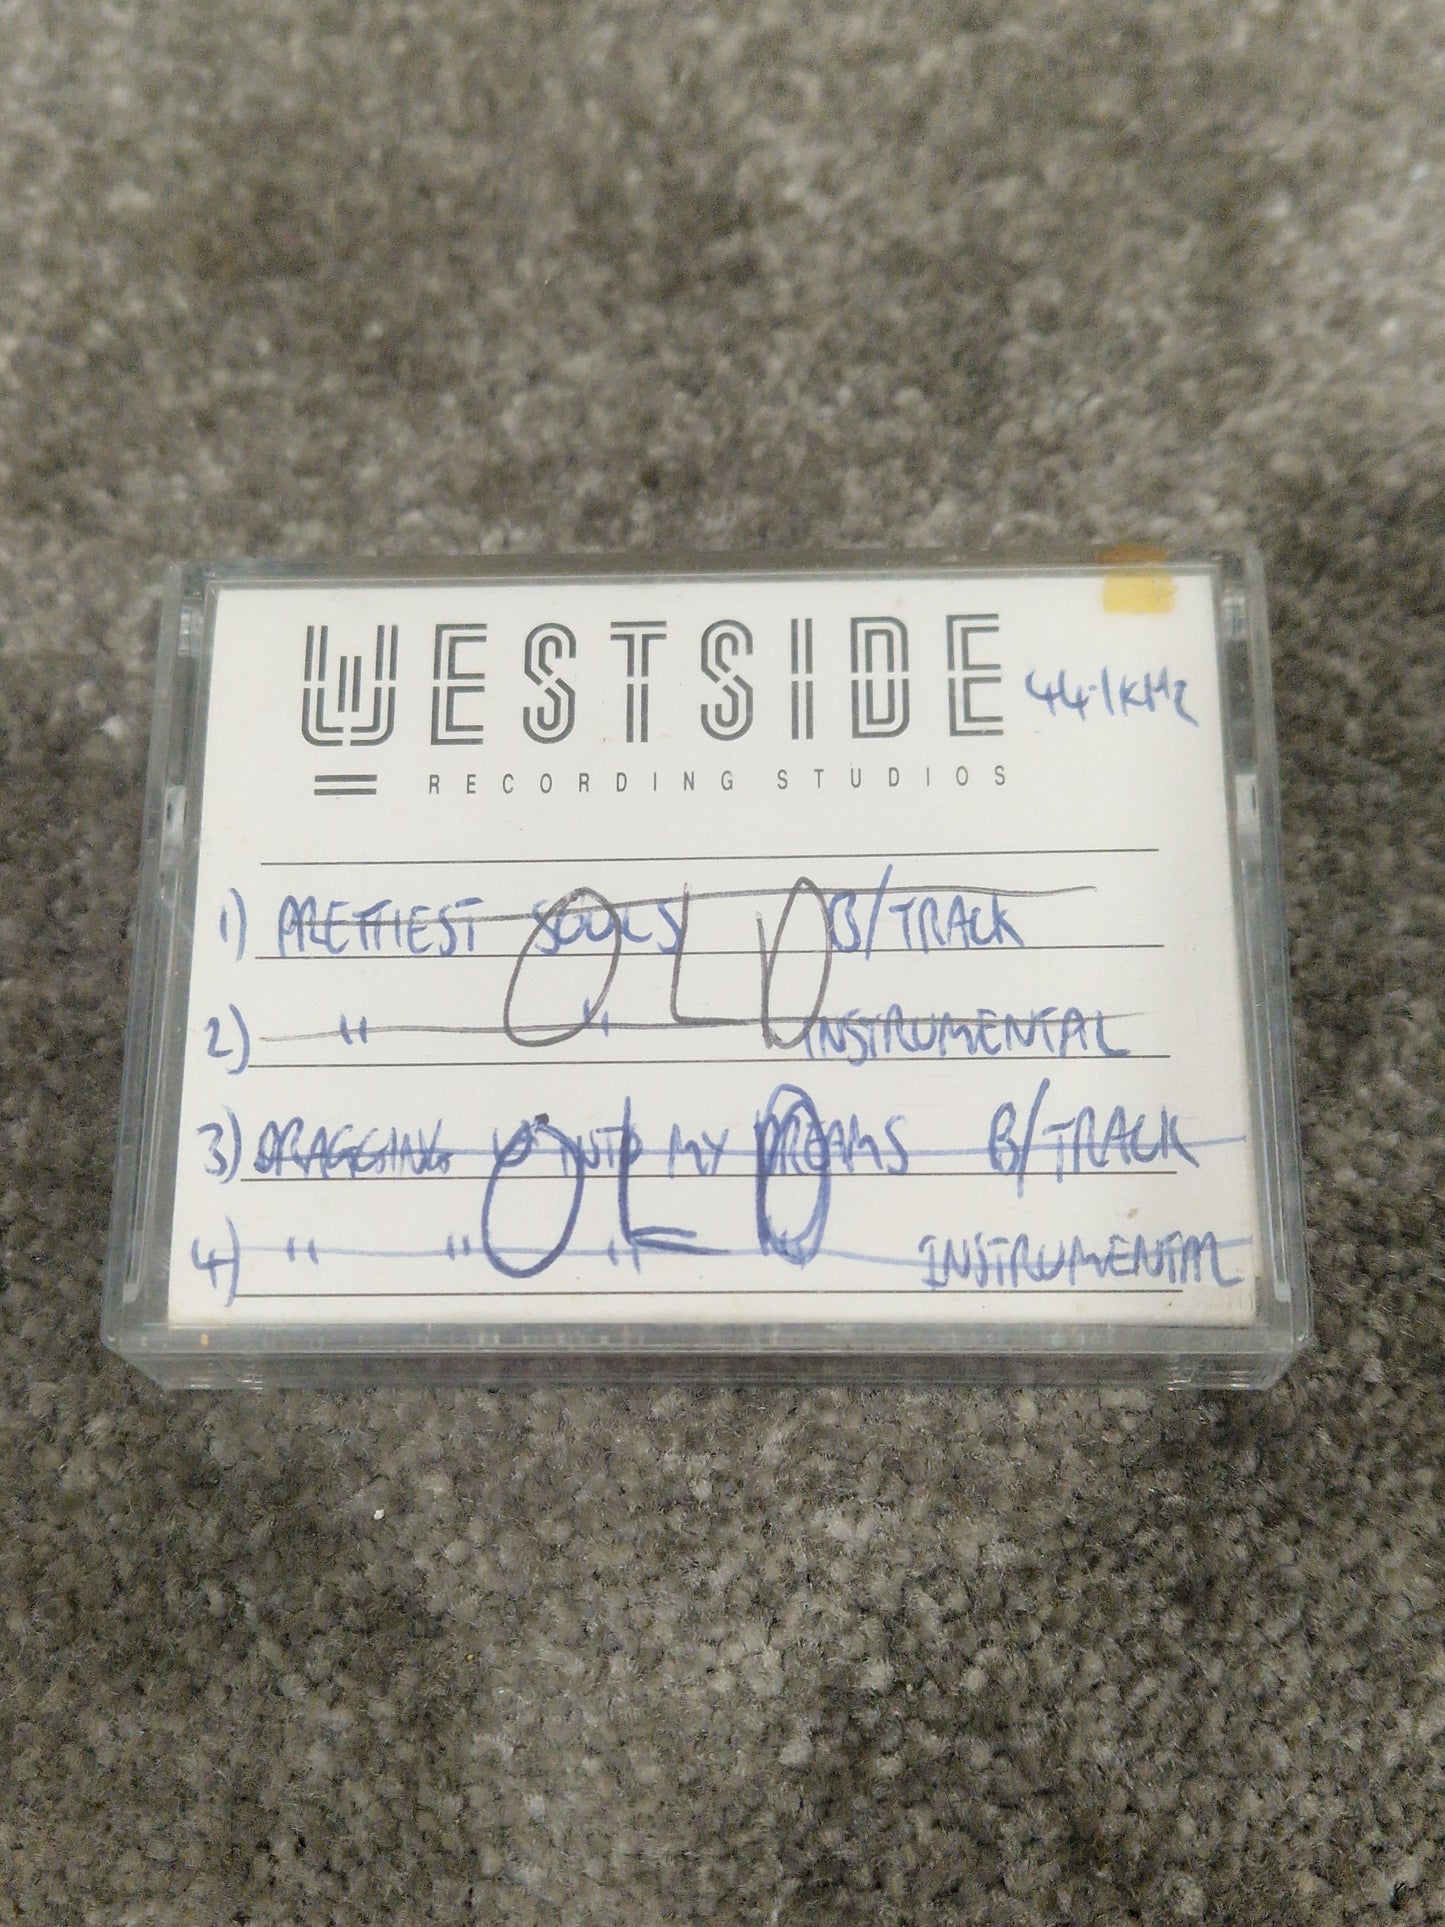 WESTSIDE 44.1KHz
RECORDING STUDIOS
1) PRETTIEST SOULS B/TRACK
OLD
2) " " INSTRUMENTAL
3) DRAGGING INTO MY DREAMS B/TRACK
OLD
4) " " " " INSTRUMENTAL